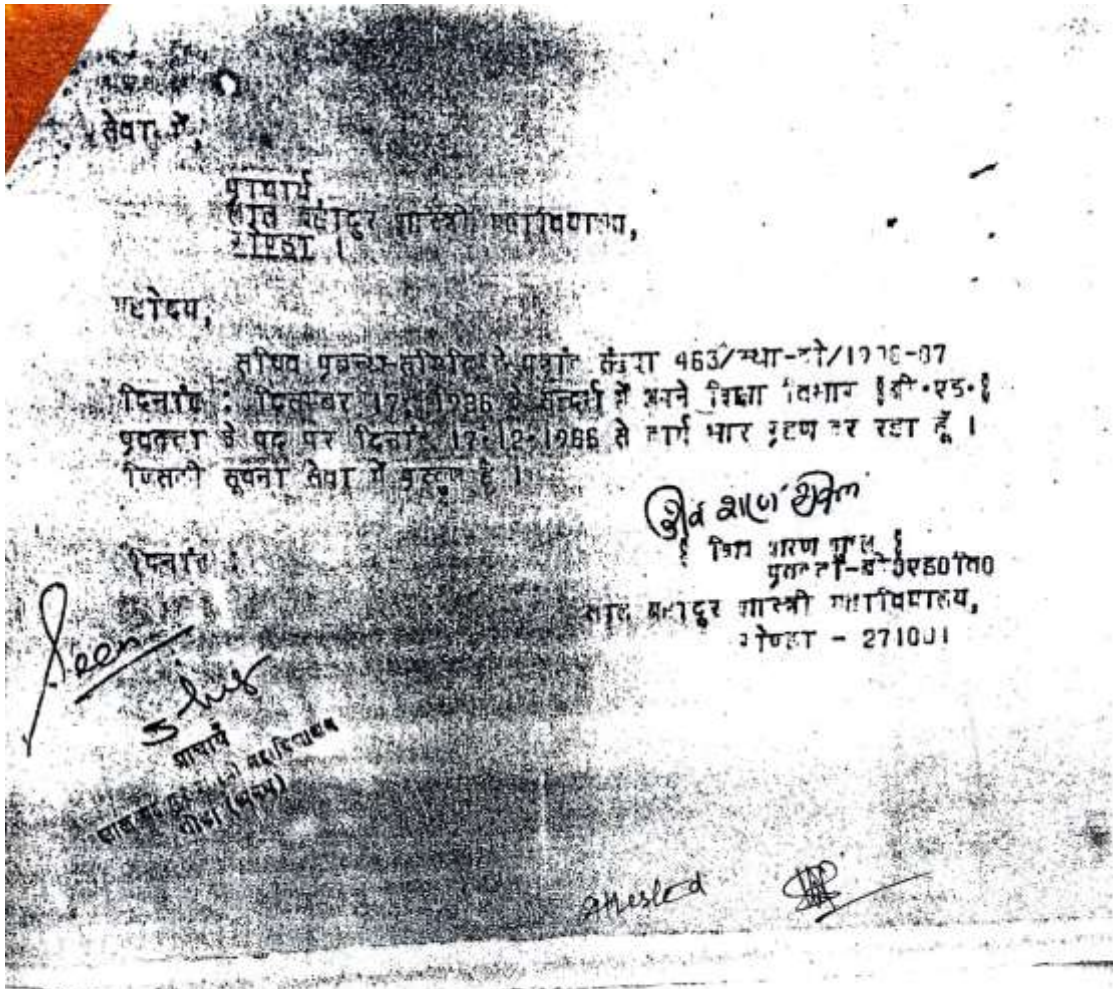 सेवा में,
प्राचार्य,
लाल बहादुर शास्त्री महाविद्यालय,
गोण्डा ।
महोदय,
सचिव प्रबन्ध-समिति के पत्रांक संख्या 463/स्था-
दिनांक : दिसम्बर 17, 1986 के सन्दर्भ में अपने शिक्षा विभाग [बी.एड.]
प्रवक्ता के पद पर दिनांक 17-12-1986 से कार्य भार ग्रहण कर रहा हूँ ।
जिसकी सूचना सेवा में प्रस्तुत है ।
शिव शरण शुक्ल
[ शिव शरण शुक्ल ]
दिनांक :
प्रवक्ता-
लाल बहादुर शास्त्री महाविद्यालय,
गोण्डा - 271001
Seen
प्राचार्य
लाल बहादुर शास्त्री महाविद्यालय
attested